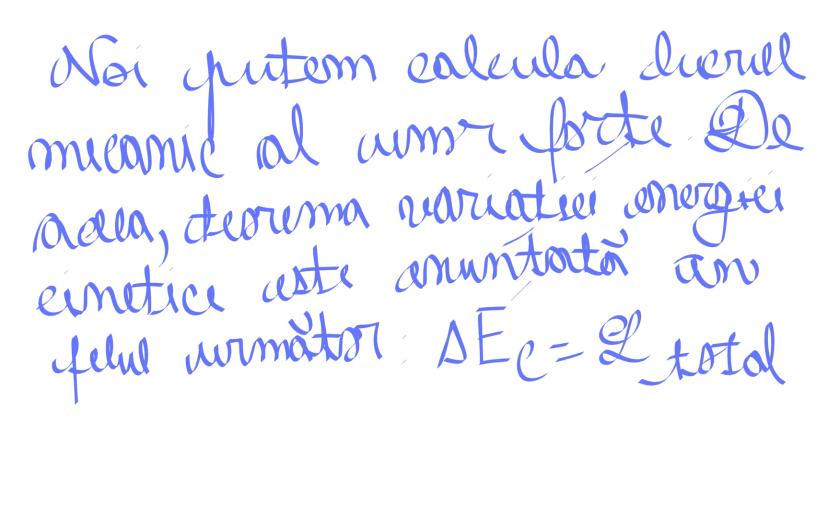 Noi putem calcula lucrul
mecanic al unor forțe De
acea, teorema variației energiei
cinetice este enunțată în
felul următor: ΔEc = L total